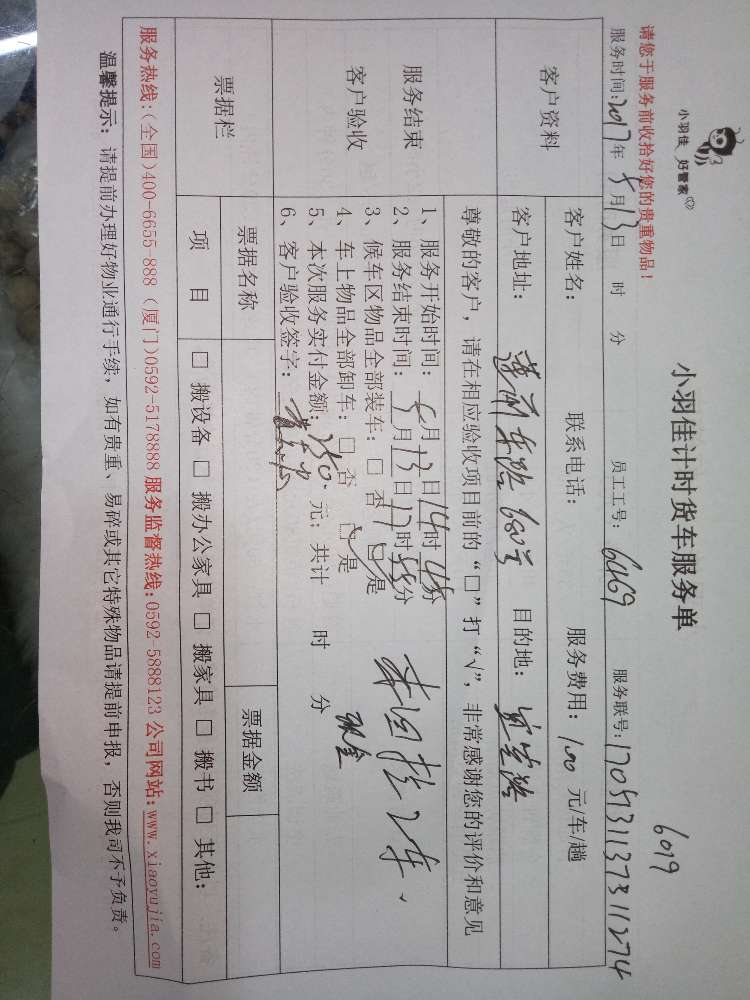 小羽佳 好管家
小羽佳计时货车服务单
6019
请您于服务前收拾好您的贵重物品!
服务时间:2017年5月13日 时 分 员工工号: 6469 服务联号:1705131137311274
客户资料
客户姓名: 联系电话: 服务费用: 100 元/车/趟
客户地址: 莲前东路 680号 目的地: 宜宾路
尊敬的客户,请在相应验收项目前的“□”打“√”,非常感谢您的评价和意见
服务结束
客户验收
1、服务开始时间: 5月13日14时45分
2、服务结束时间: 5月13日17时55分
3、候车区物品全部装车: □ 否 □ 是
4、车上物品全部卸车: □ 否 □ 是
5、本次服务实付金额: 250. 元; 共计 时 分
6、客户验收签字:
现金
票据栏
票据名称 票据金额
项 目 □ 搬设备 □ 搬办公家具 □ 搬家具 □ 搬书 □ 其他:
服务热线:(全国)400-6655-888 (厦门)0592-5178888 服务监督热线:0592-5888123 公司网站:www.xiaoyujia.com
温馨提示: 请提前办理好物业通行手续, 如有贵重、易碎或其它特殊物品请提前申报, 否则我司不予负责。